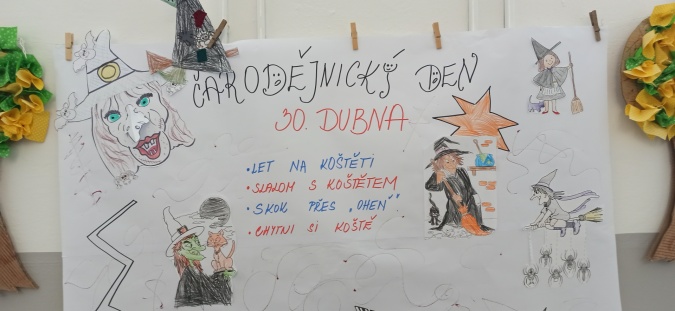 ČARODĚJNICKÝ DEN
30. DUBNA
• LET NA KOŠTĚTI
• SLALOM S KOŠTĚTEM
• SKOK PŘES „OHEŇ“
• CHYTNI SI KOŠTĚ